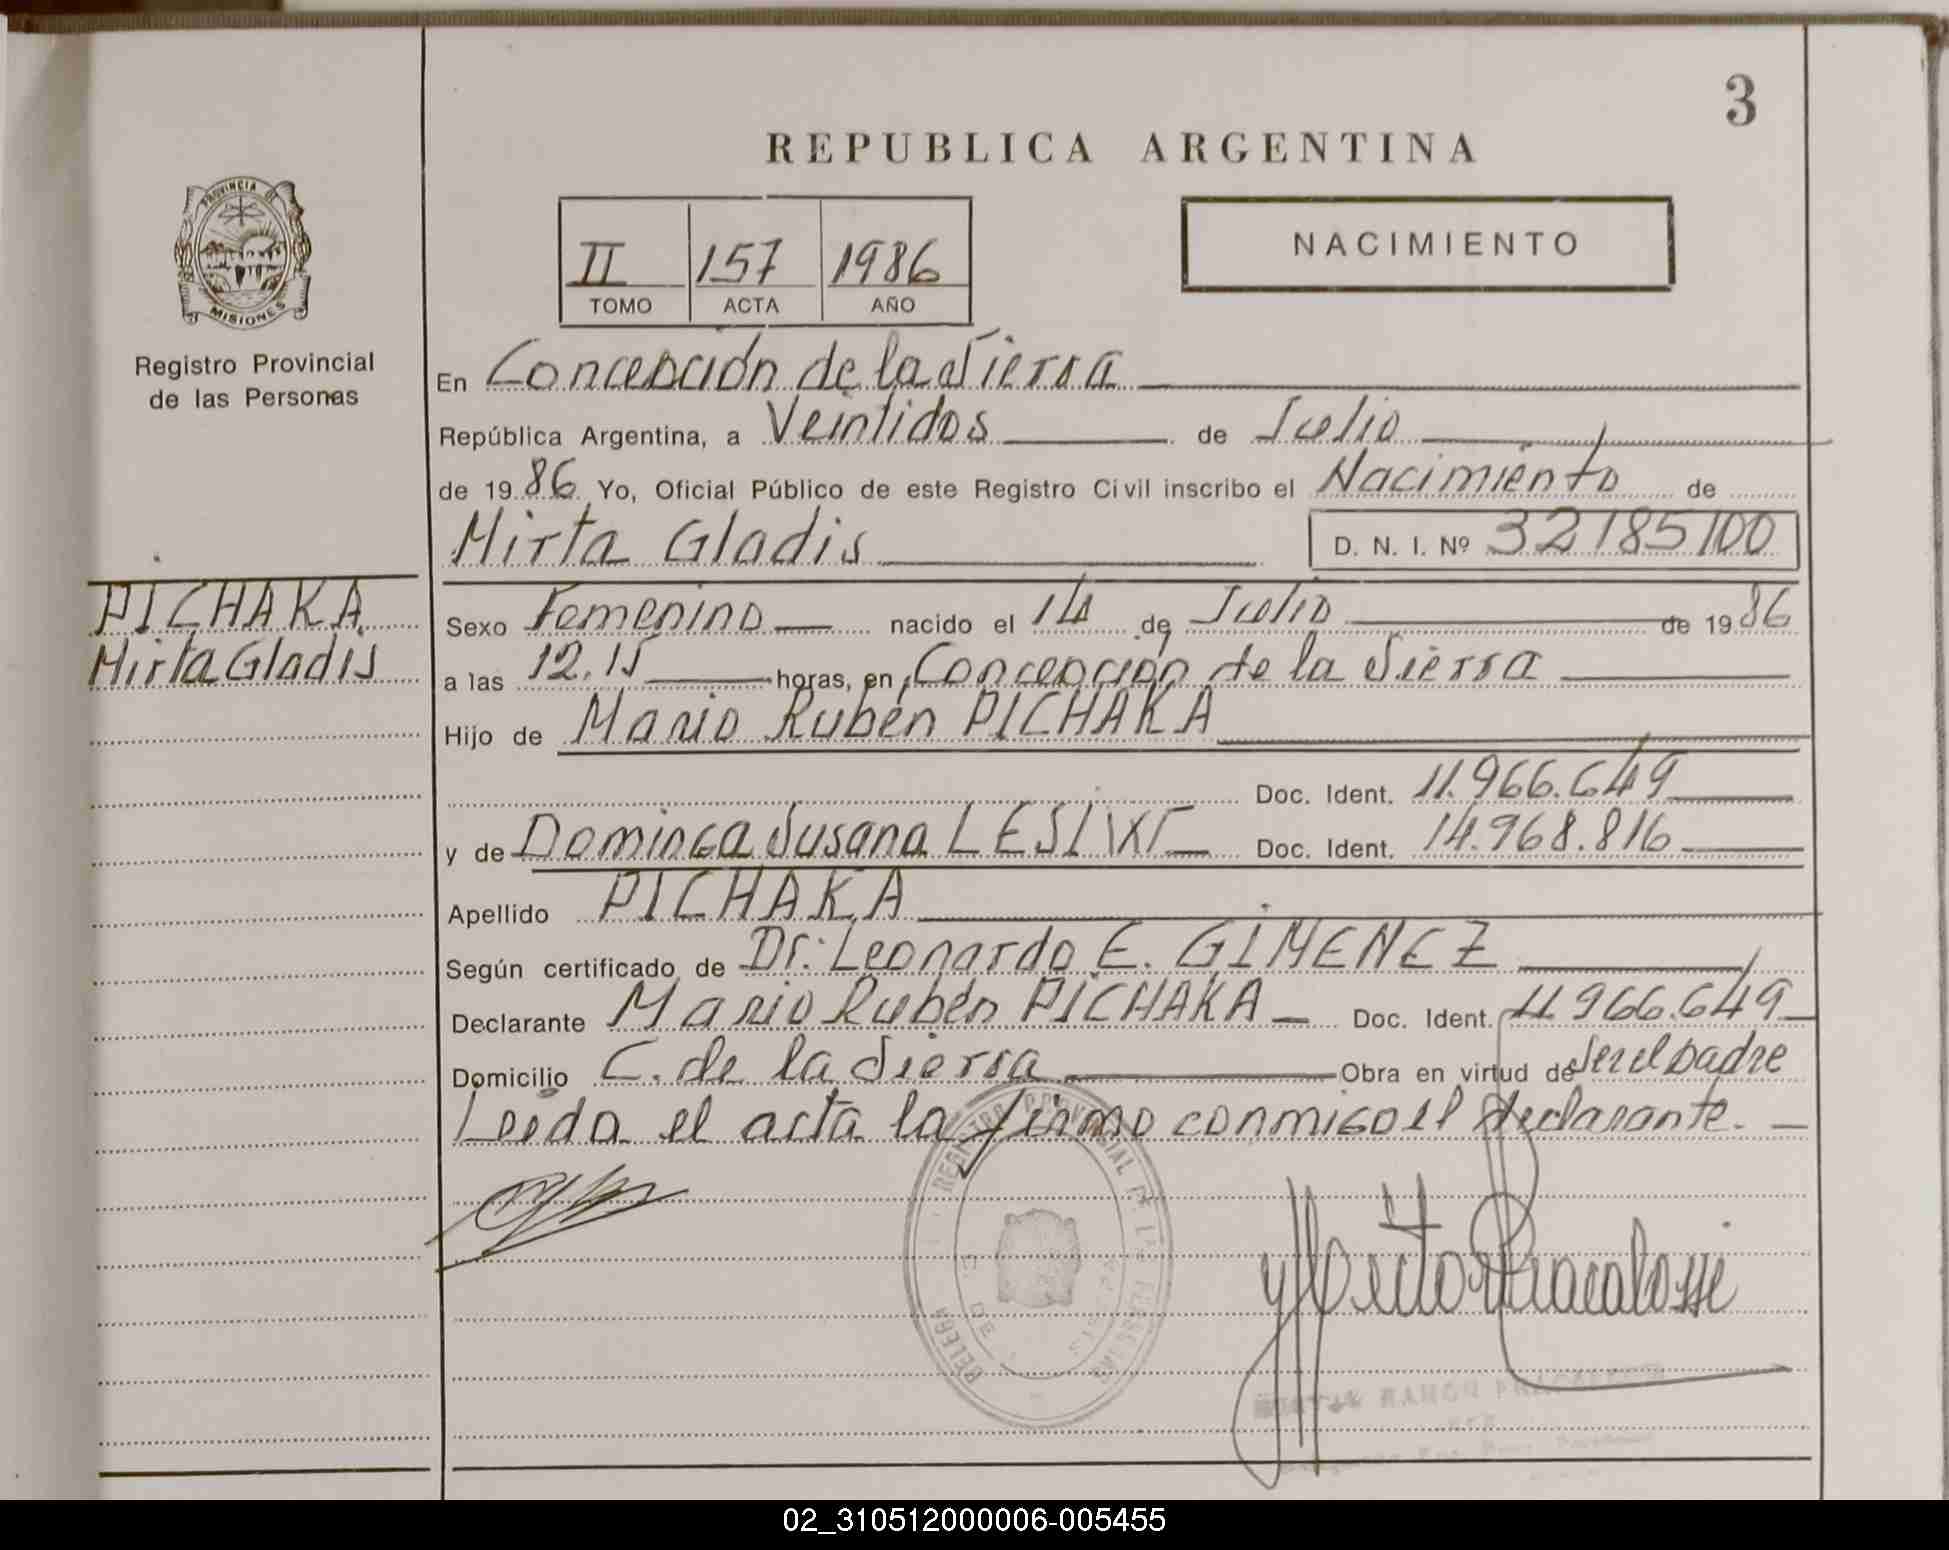 3
REPUBLICA ARGENTINA
PROVINCIA DE
MISIONES
Registro Provincial
de las Personas
II 157 1986
TOMO ACTA AÑO
NACIMIENTO
En Concepción de la Sierra
República Argentina, a Veintidos de Julio
de 1986 Yo, Oficial Público de este Registro Civil inscribo el Nacimiento de
Mirta Gladis D. N. I. Nº 32185100
PICHAKA
Mirta Gladis
Sexo Femenino nacido el 14 de Julio de 1986
a las 12.15 horas, en Concepción de la Sierra
Hijo de Mario Rubén PICHAKA
Doc. Ident. 11.966.649
y de Dominga Susana Doc. Ident. 14.968.816
Apellido PICHAKA
Según certificado de Dr. Leonardo E. GIMENEZ
Declarante Mario Rubén PICHAKA Doc. Ident. 11.966.649
Domicilio C. de la Sierra Obra en virtud de Ser el padre
Leida el acta la firmo conmigo el declarante.
REGISTRO PROVINCIAL DE LAS PERSONAS
Hector
RAMON
02_310512000006-005455